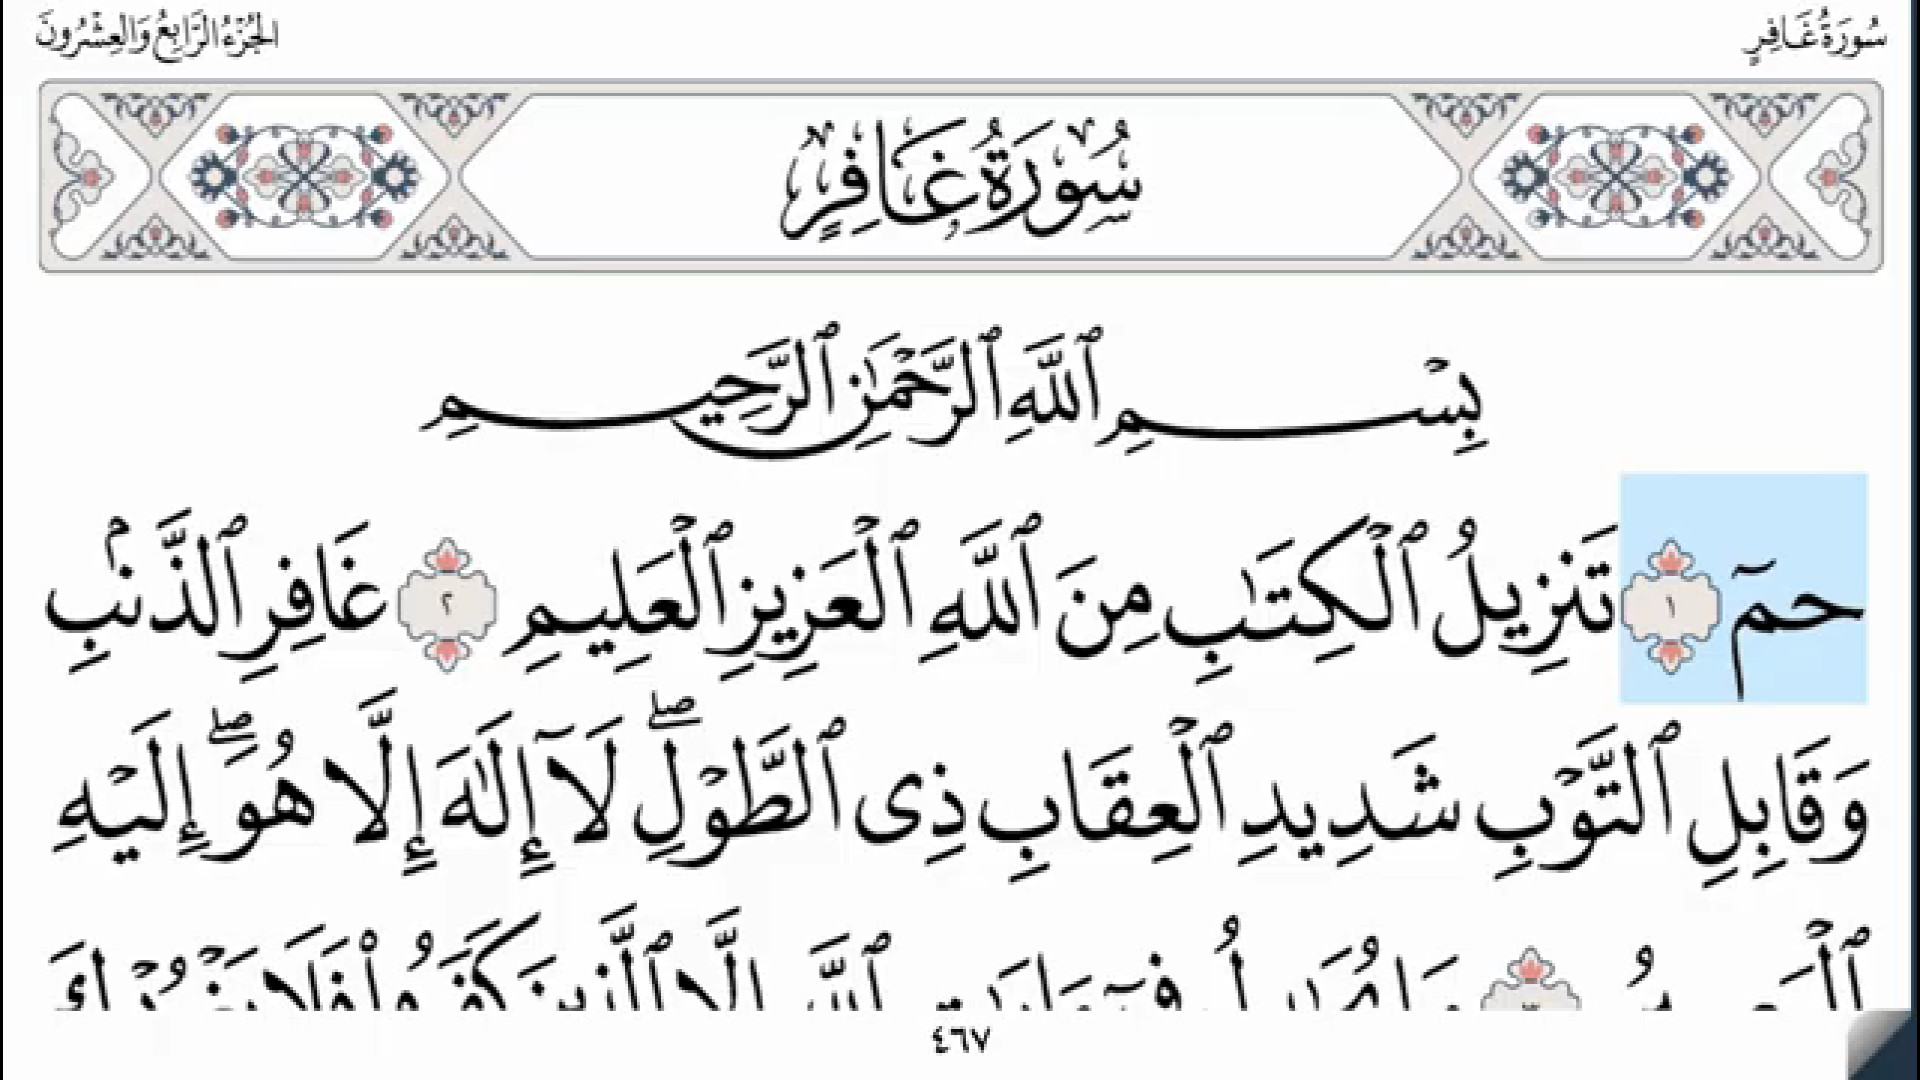 سُورَةُ غَافِرٍ
الجُزْءُ الرَّابِعُ وَالعِشْرُونَ
سُورَةُ غَافِرٍ
بِسْمِ ٱللَّهِ ٱلرَّحْمَٰنِ ٱلرَّحِيمِ
حمٓ ١ تَنزِيلُ ٱلْكِتَٰبِ مِنَ ٱللَّهِ ٱلْعَزِيزِ ٱلْعَلِيمِ ٢ غَافِرِ ٱلذَّنۢبِ
وَقَابِلِ ٱلتَّوْبِ شَدِيدِ ٱلْعِقَابِ ذِى ٱلطَّوْلِۖ لَآ إِلَٰهَ إِلَّا هُوَۖ إِلَيْهِ
٤٦٧